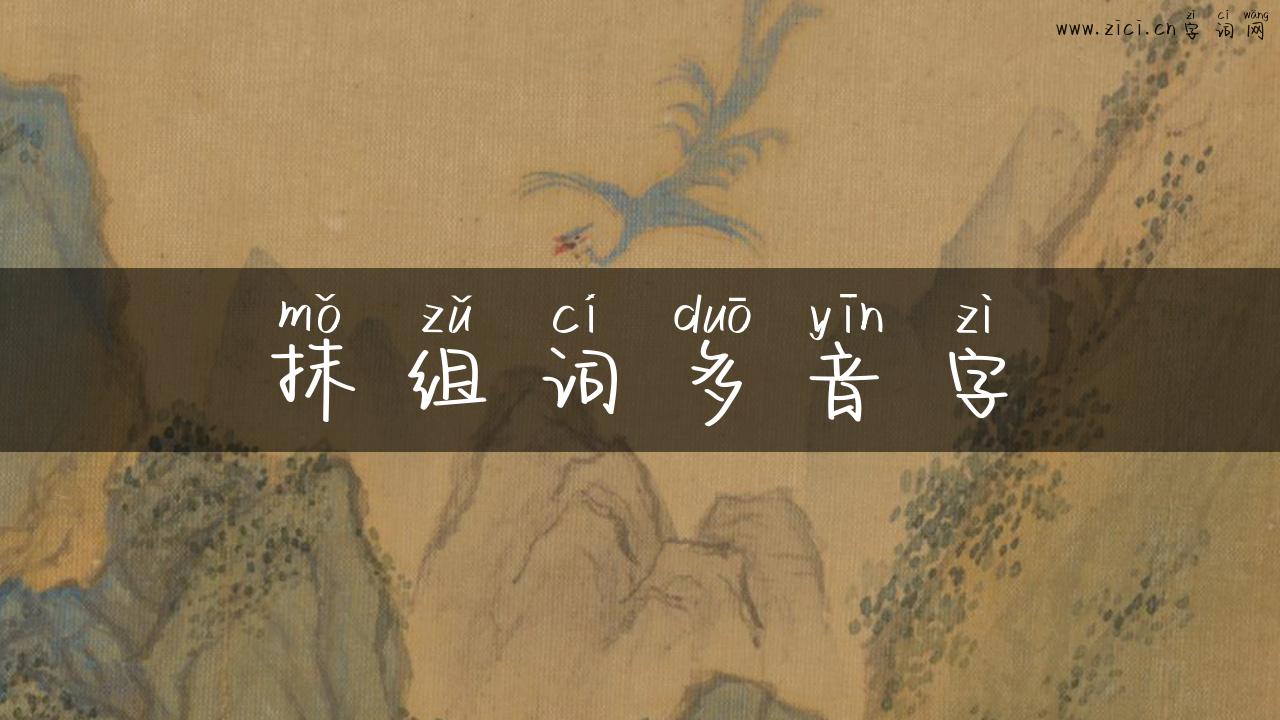 zì cí wǎng
www.zici.cn字词网
mǒ zǔ cí duō yīn zì
抹组词多音字